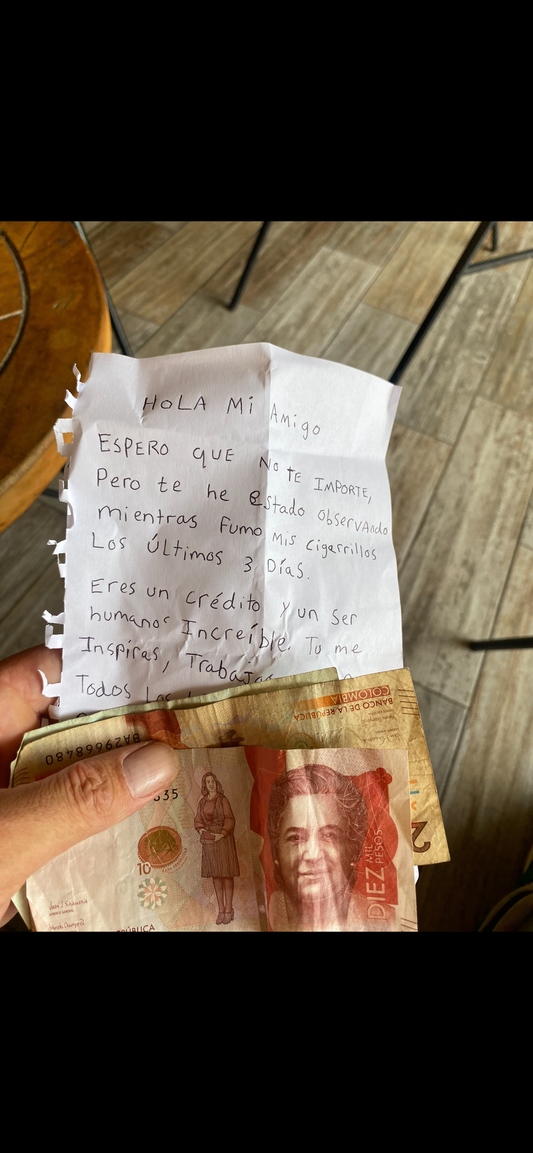 HOLA Mi Amigo
ESPERO QUE NO TE IMPORTE,
Pero te he estado observando
mientras Fumo mis cigarrillos
Los Últimos 3 Días.
Eres un crédito y un ser
humanos Increíble. Tu me
Inspiras,
Todos Los
BANCO DE LA REPÚBLICA
COLOMBIA
BA29668480
2
335
10
DIEZ MIL
PESOS
PÚBLICA